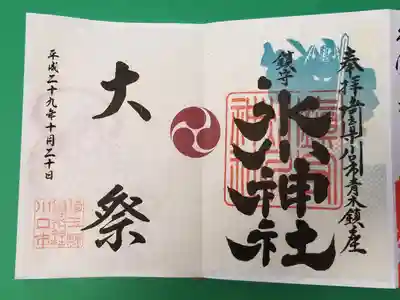 奉拝 埼玉県川口市青木鎮座
鎮守
氷川神社
大祭
平成二十九年十月二十日